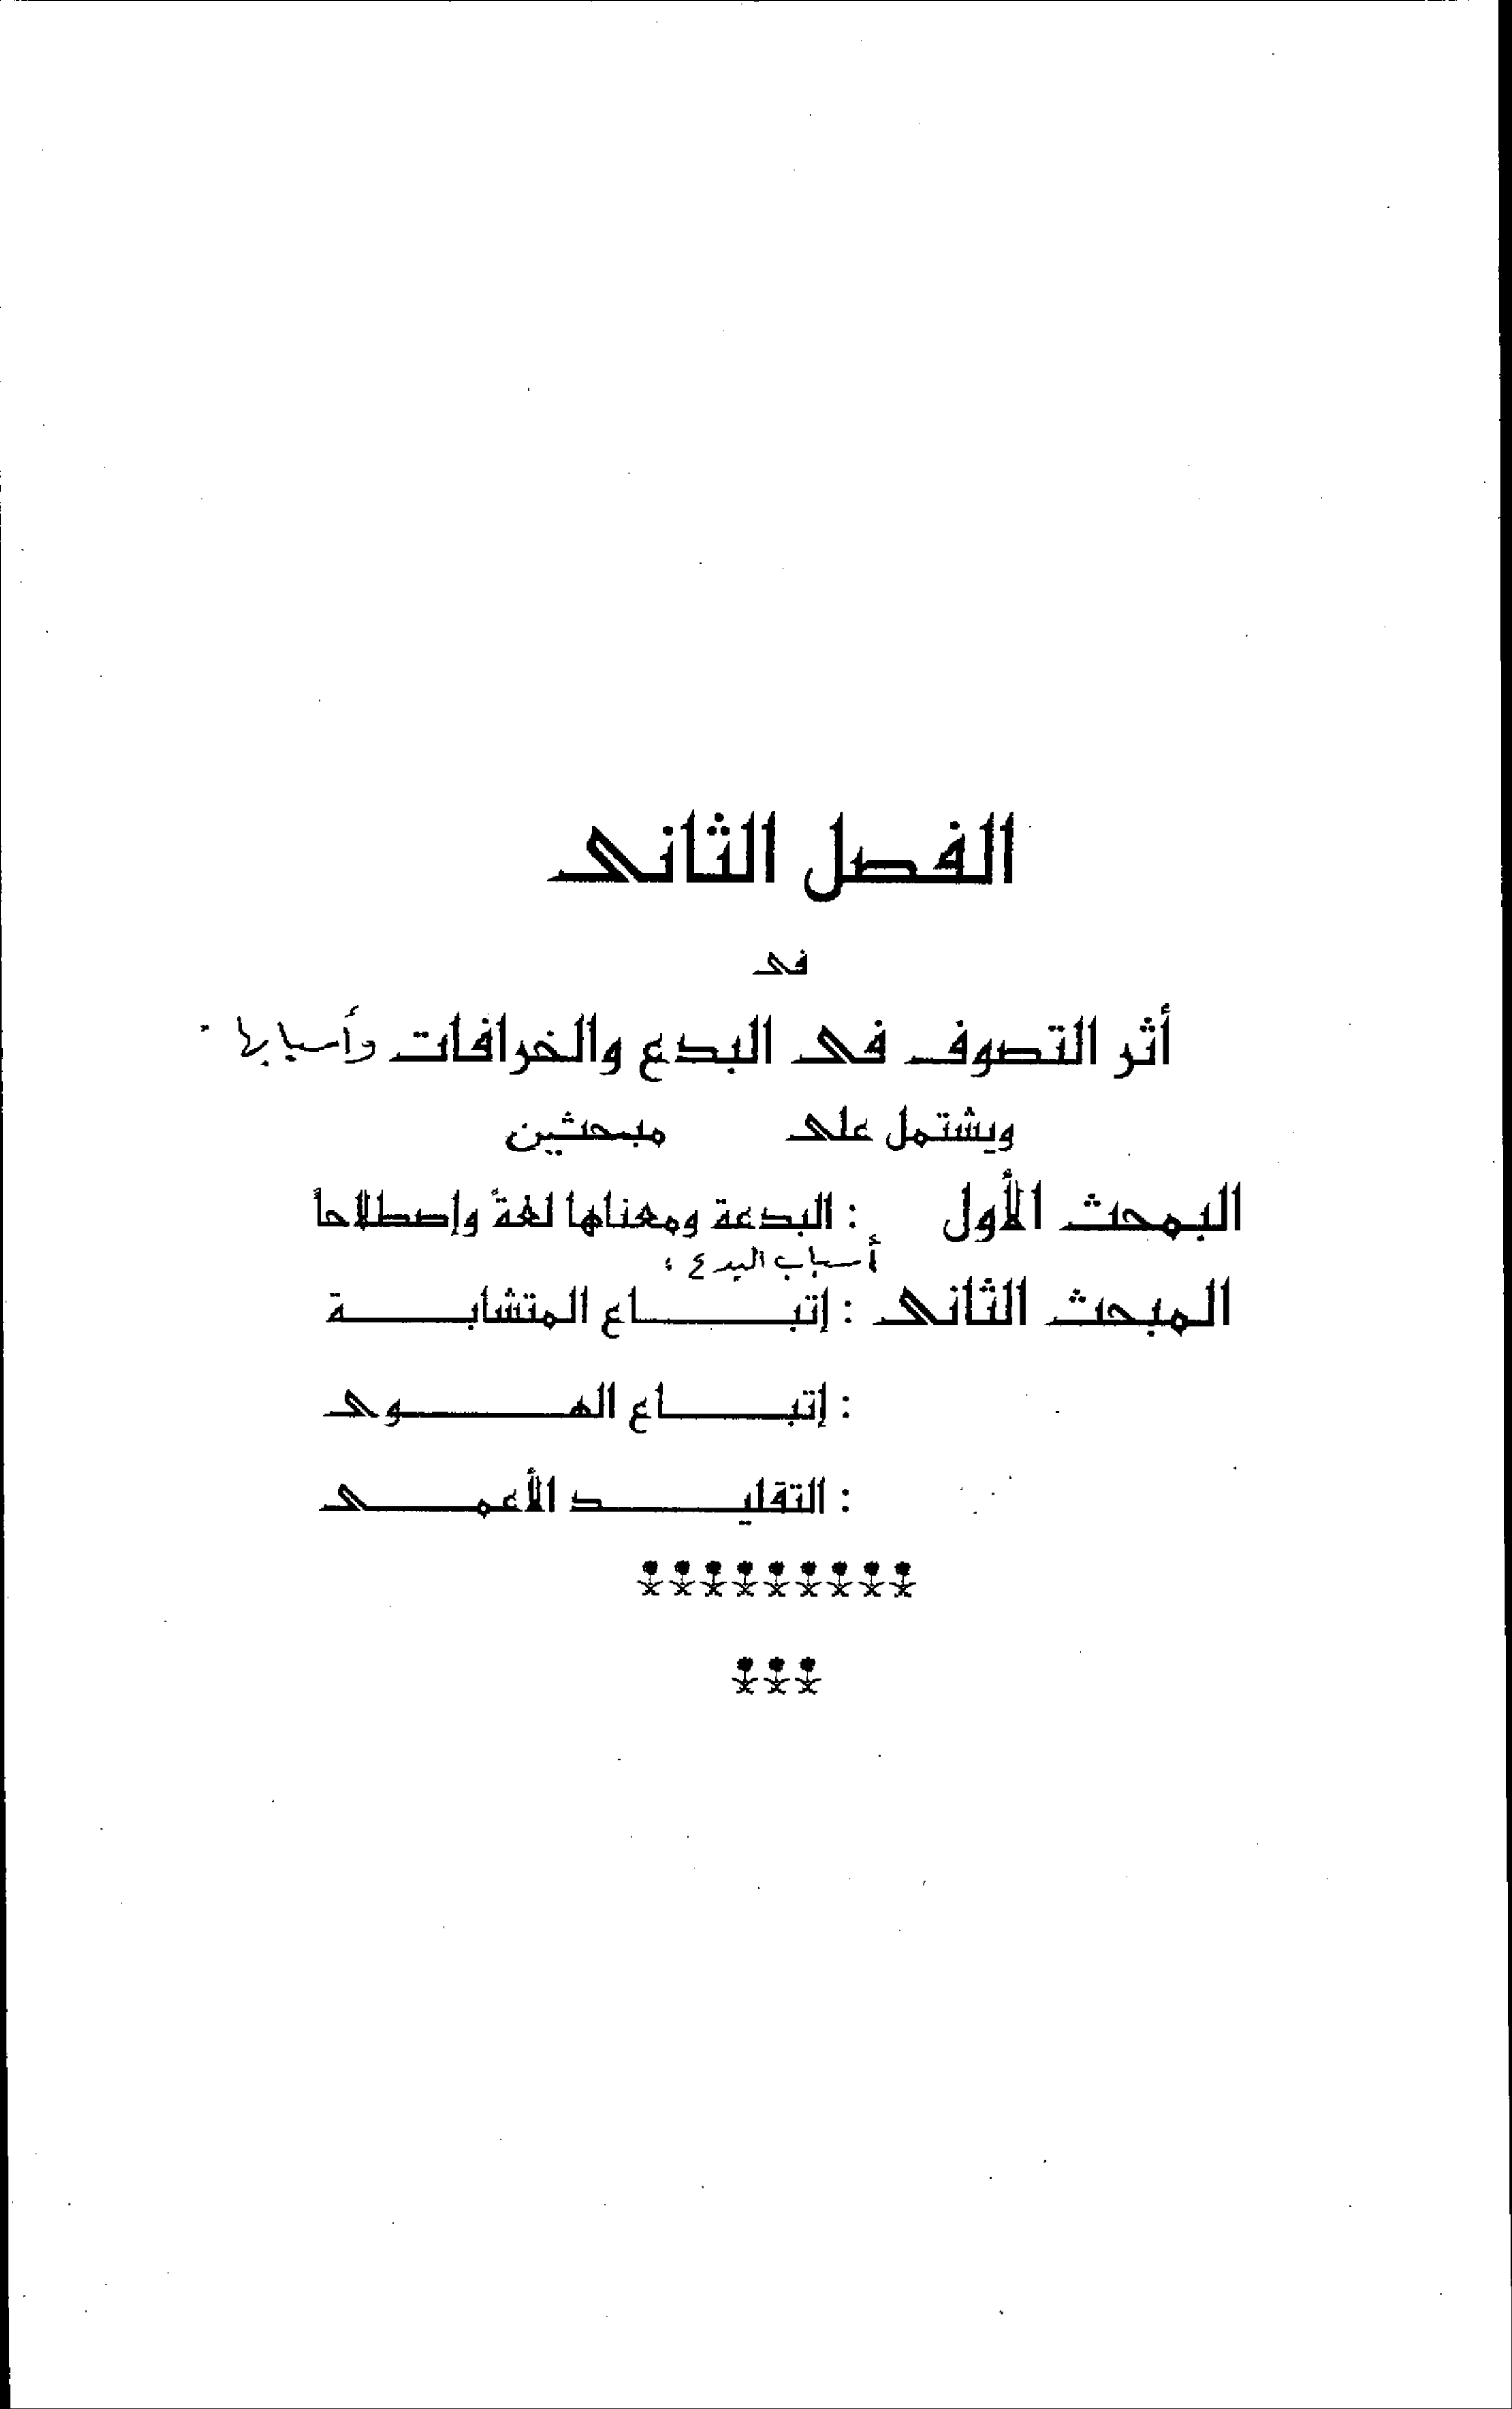 الفصل الثانى
فى
أثر التصوف فى البدع والخرافات وأسبابها .
ويشتمل على مبحثين
البمحث الأول : البدعة ومعناها لغةً وإصطلاحاً
أسباب البدع :
المبحث الثانى : إتبـــــاع المتشابـــــة
: إتبـــــاع الهـــــوى
: التقليـــــد الأعمـــــى